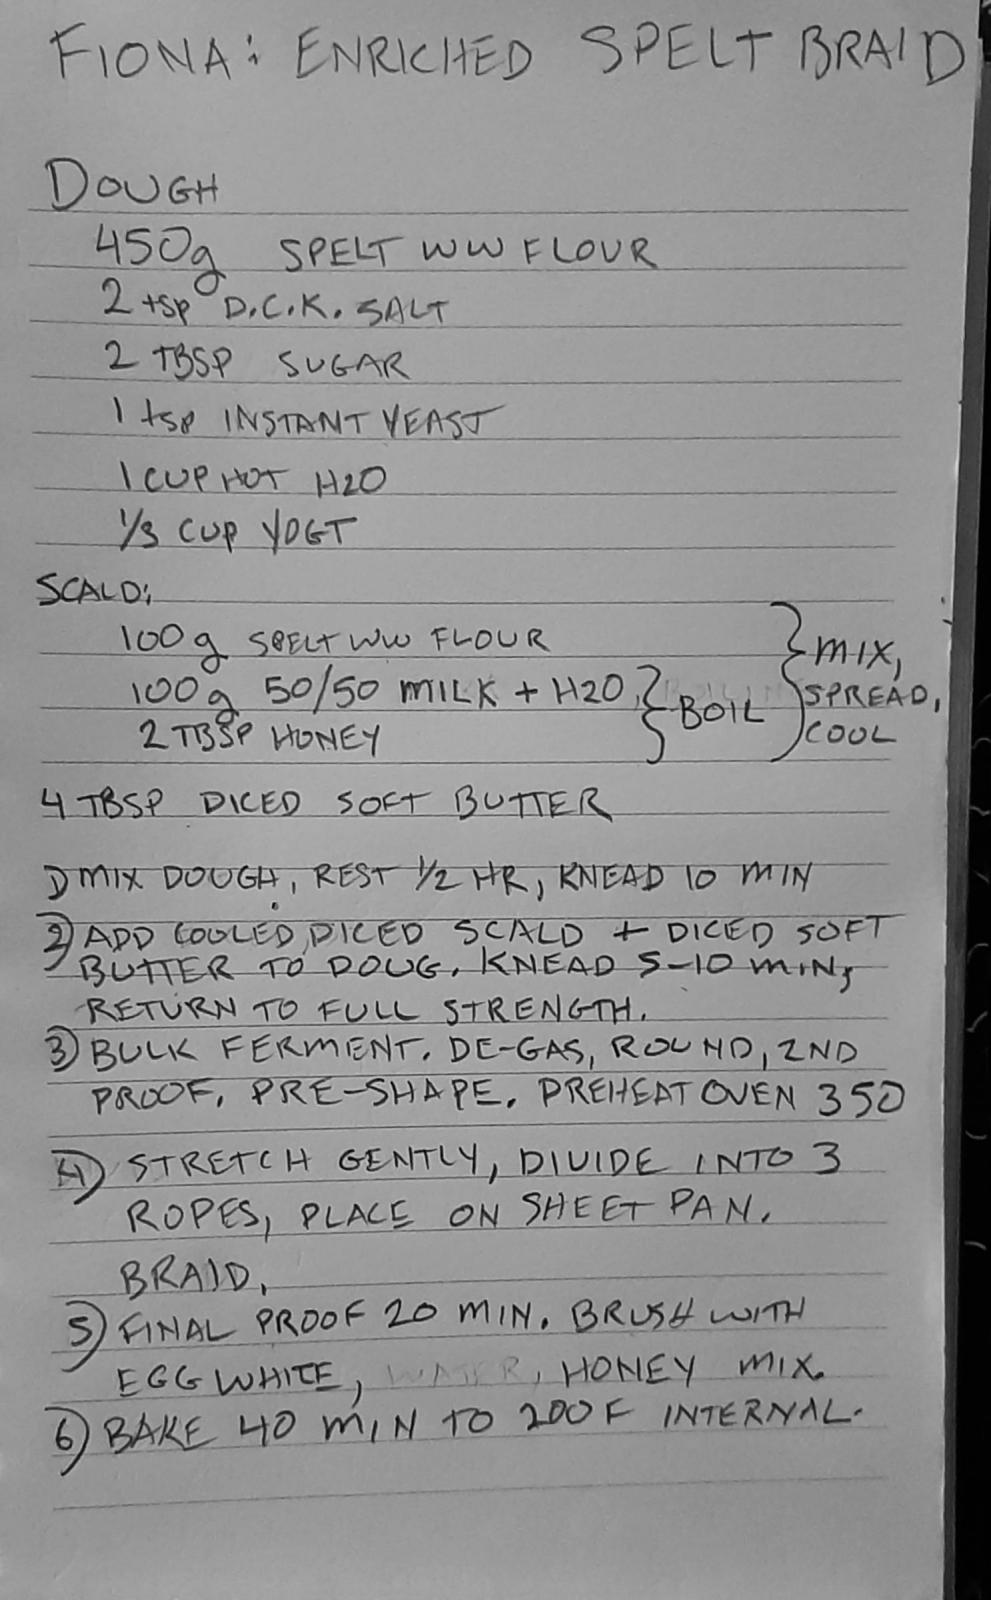 FIONA: ENRICHED SPELT BRAID
DOUGH
450g SPELT WW FLOUR
2 tsp D.C.K. SALT
2 TBSP SUGAR
1 tsp INSTANT YEAST
1 CUP HOT H2O
1/3 CUP YOGT
SCALD:
100g SPELT WW FLOUR
100g 50/50 MILK + H2O
2 TBSP HONEY
BOIL
MIX,
SPREAD,
COOL
4 TBSP DICED SOFT BUTTER
1) MIX DOUGH, REST 1/2 HR, KNEAD 10 MIN
2) ADD COOLED, DICED SCALD + DICED SOFT
BUTTER TO DOUG. KNEAD 5-10 MIN,
RETURN TO FULL STRENGTH.
3) BULK FERMENT. DE-GAS, ROUND, 2ND
PROOF. PRE-SHAPE. PREHEAT OVEN 350
4) STRETCH GENTLY, DIVIDE INTO 3
ROPES, PLACE ON SHEET PAN.
BRAID.
5) FINAL PROOF 20 MIN. BRUSH WITH
EGG WHITE, WATER, HONEY MIX.
6) BAKE 40 MIN TO 200F INTERNAL.